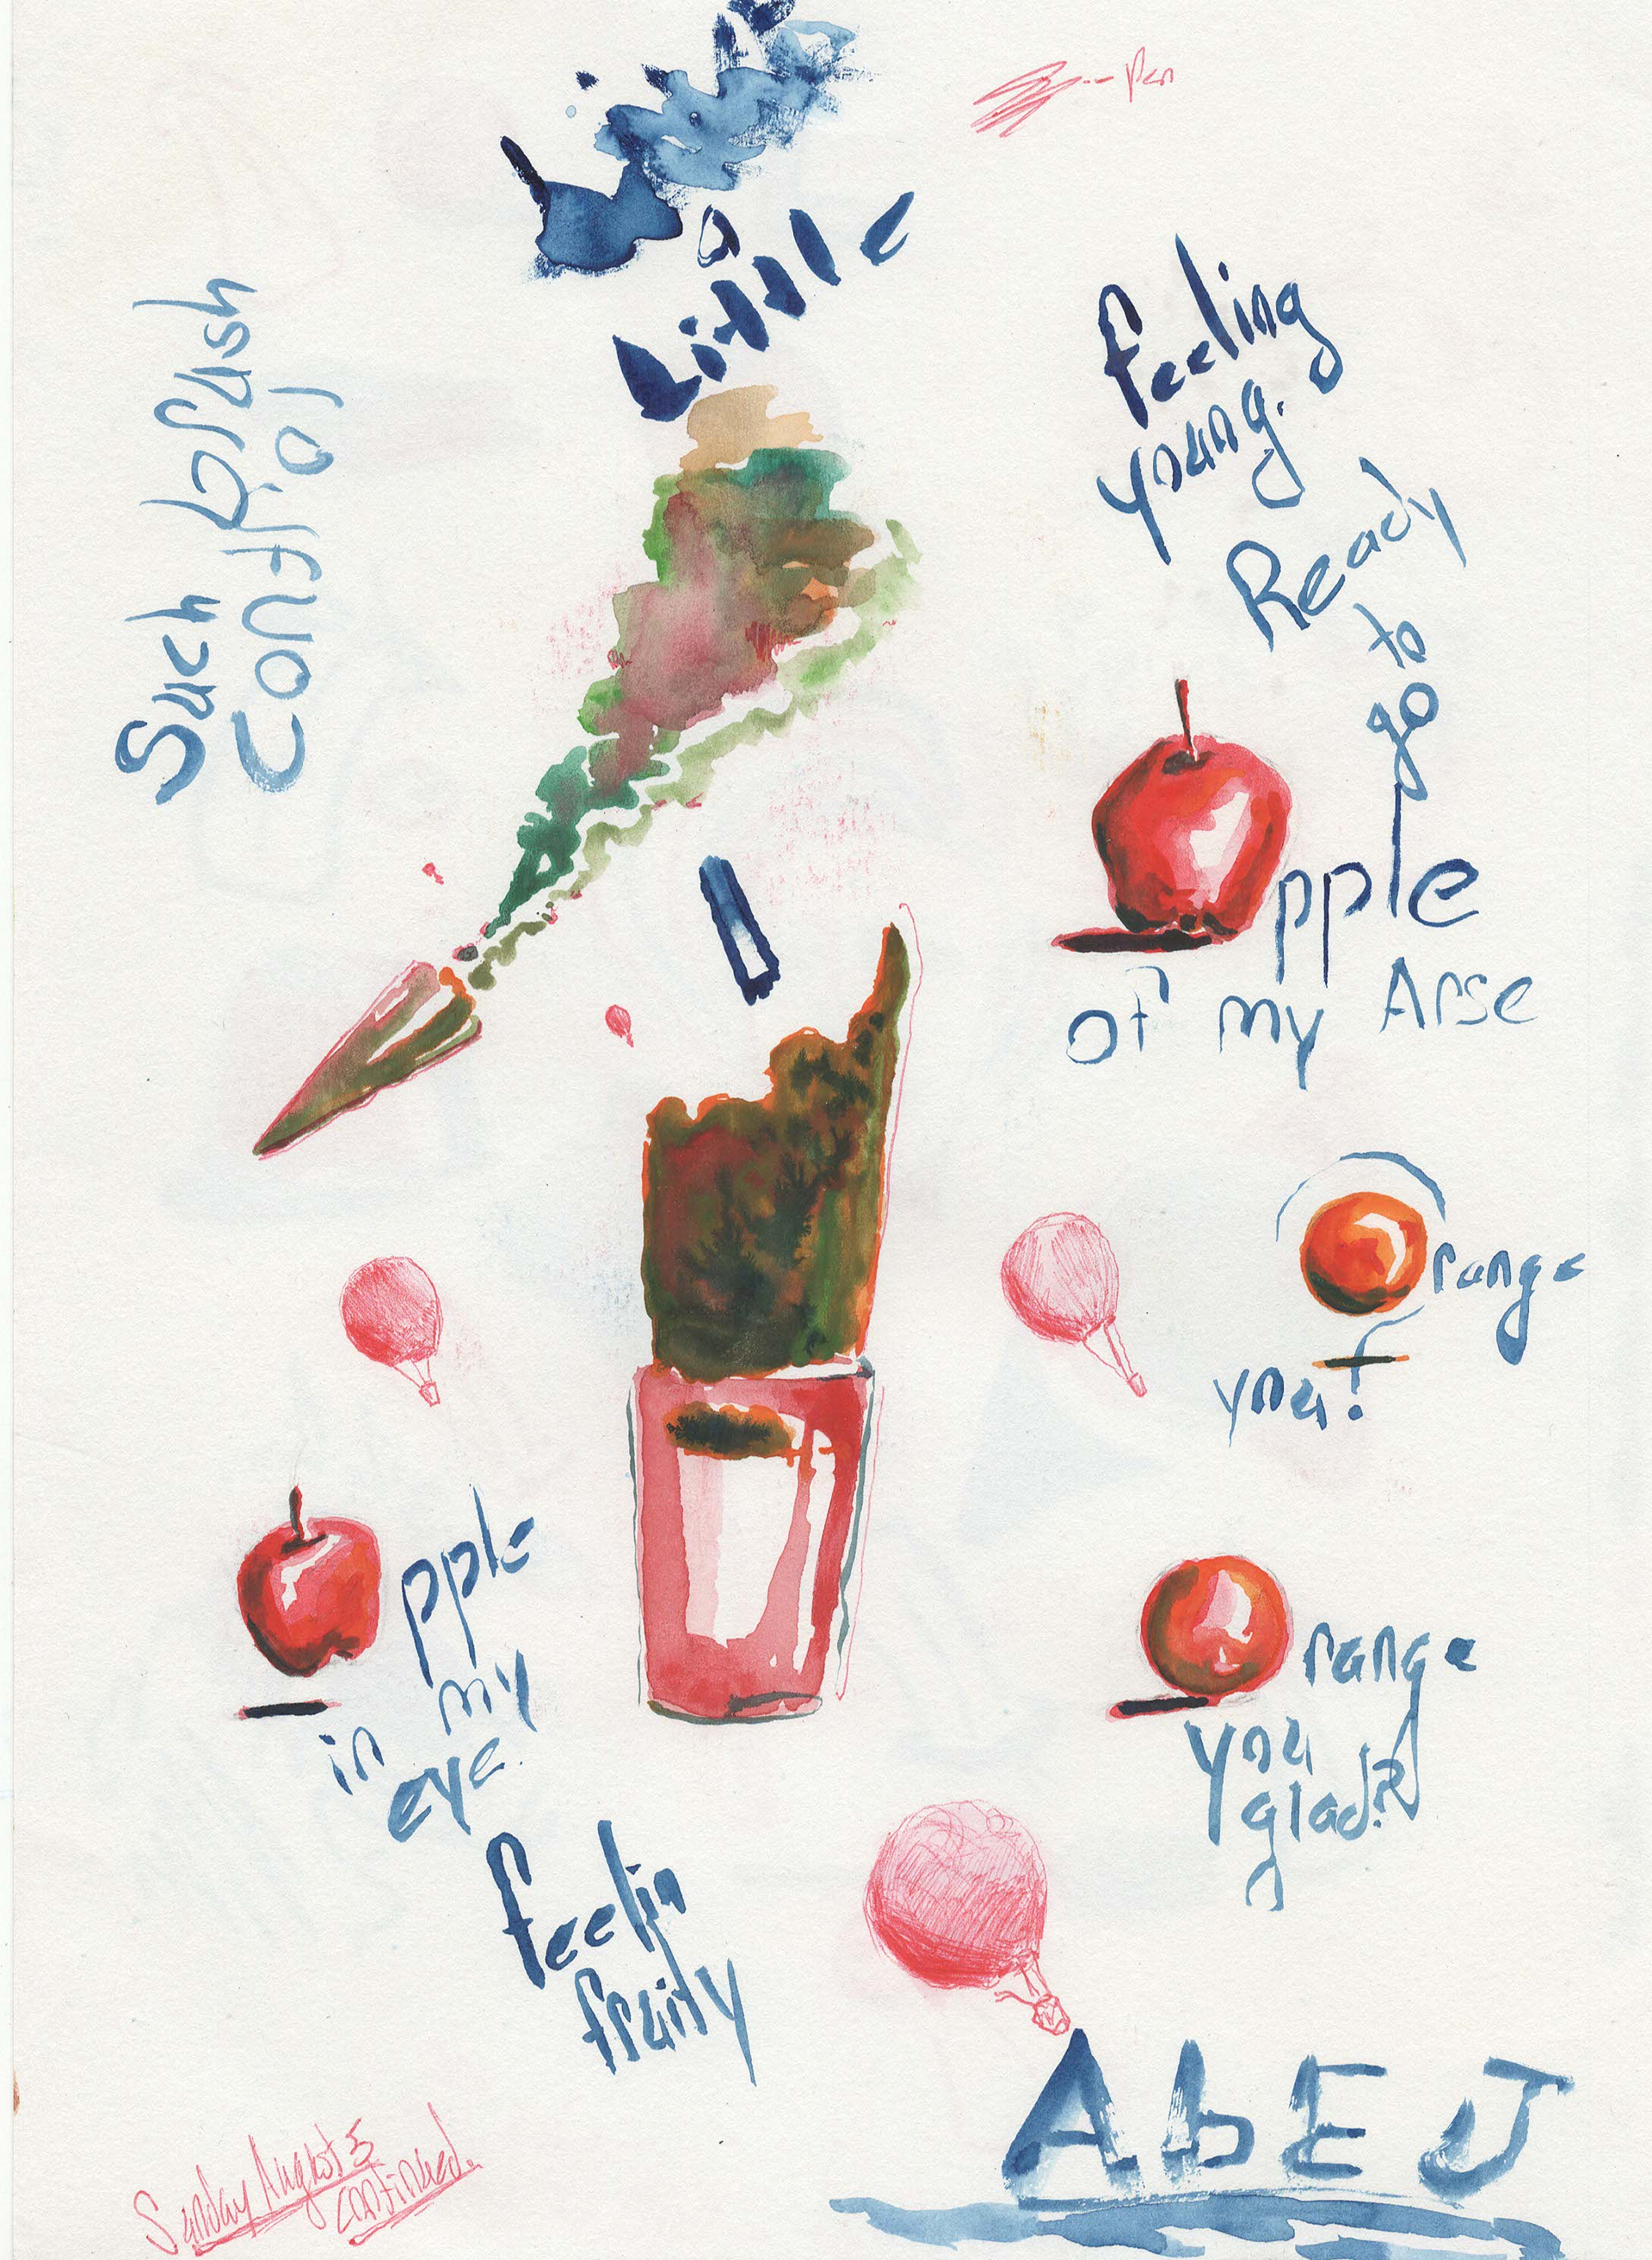 Pen
a
Little
Such brush
control
feeling
young.
Ready
to
go
pple
of my Arse
range
you!
pple
in my
eye.
range
you
glad?
feelin
fruity
AbE J
Sunday August 5
continued.